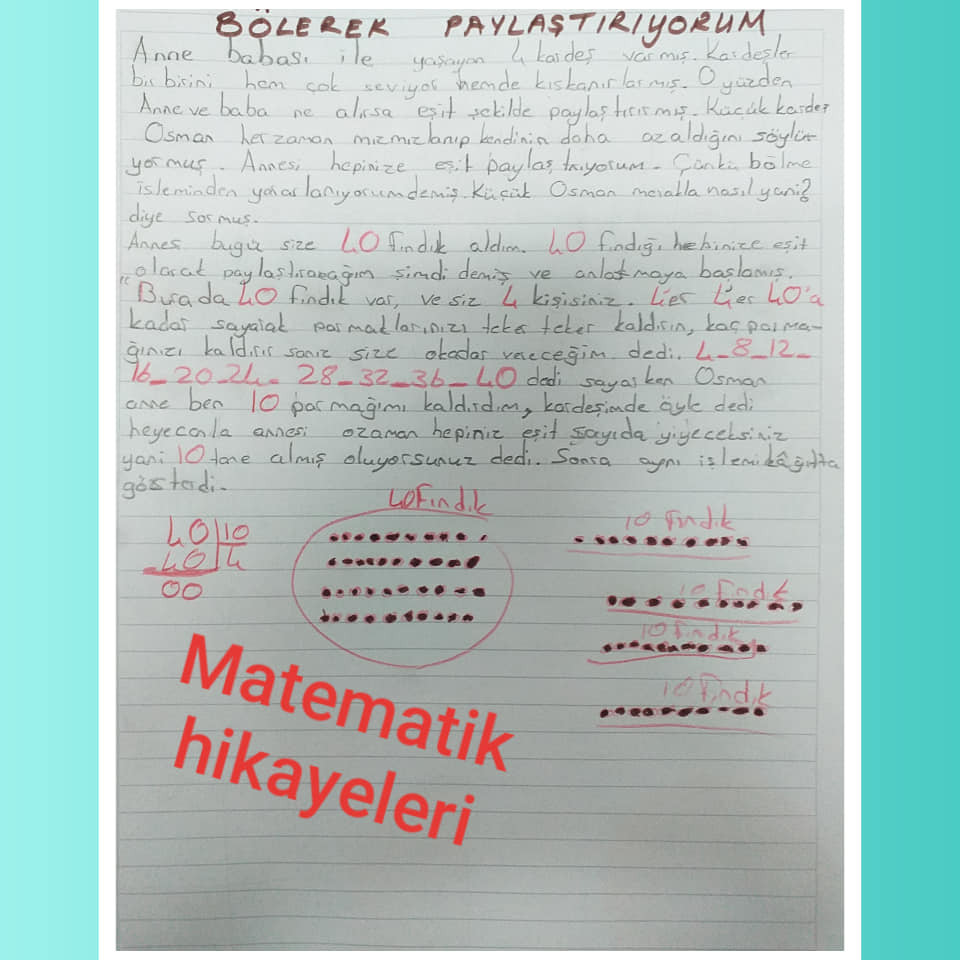 BÖLEREK PAYLAŞTIRIYORUM
Anne babası ile yaşayan 4 kardeş varmış. Kardeşler
bir birini hem çok seviyor hemde kıskanırlarmış. O yüzden
Anne ve baba ne alırsa eşit şekilde paylaştırırmış. Küçük kardeş
Osman her zaman mızmızlanıp kendinin daha az aldığını söylü-
yormuş. Annesi hepinize eşit paylaştrıyorum. Çünkü bölme
işleminden yararlanıyorum demiş. Küçük Osman merakla nasıl yani?
diye sormuş.
Annesi bugün size 40 fındık aldım. 40 fındığı hepinize eşit
olarak paylaştıracağım şimdi demiş ve anlatmaya başlamış.
"Burada 40 fındık var, ve siz 4 kişisiniz. 4'er 4'er 40'a
kadar sayarak parmaklarınızı teker teker kaldırın, kaç parma-
ğınızı kaldırırsanız size okadar vereceğim dedi. 4-8-12-
16-20-24- 28-32-36-40 dedi sayarken Osman
anne ben 10 parmağımı kaldırdım, kardeşimde öyle dedi
heyecanla annesi ozaman hepiniz eşit sayıda yiyeceksiniz
yani 10 tane almış oluyorsunuz dedi. Sonra aynı işlemi kâğıtta
gösterdi.
40 Fındık
40 10
-40 4
00
10 fındık
10 fındık
10 fındık
10 fındık
Matematik
hikayeleri